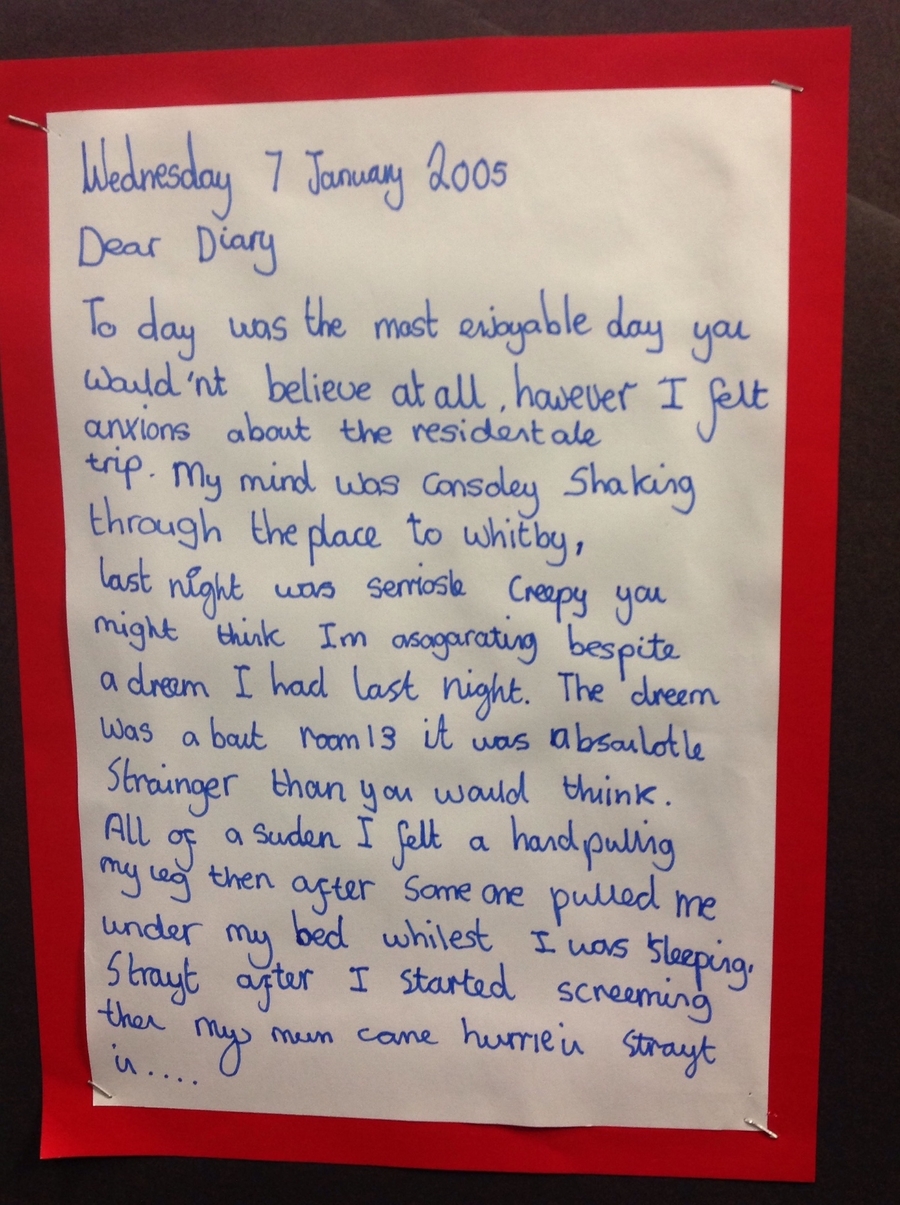 Wednesday 7 January 2005
Dear Diary
To day was the most enjoyable day you
would'nt believe at all, however I felt
anxions about the residentale
trip. My mind was consoley shaking
through the place to whitby,
last night was serriosle creepy you
might think Im asagarating bespite
a dreem I had last night. The dreem
was a bout room 13 it was absoulotle
Strainger than you would thuink.
All of a suden I felt a hand pulling
my leg then after some one pulled me
under my bed whilest I was sleeping.
Strayt after I started screeming
then my mum came hurrie in strayt
in....